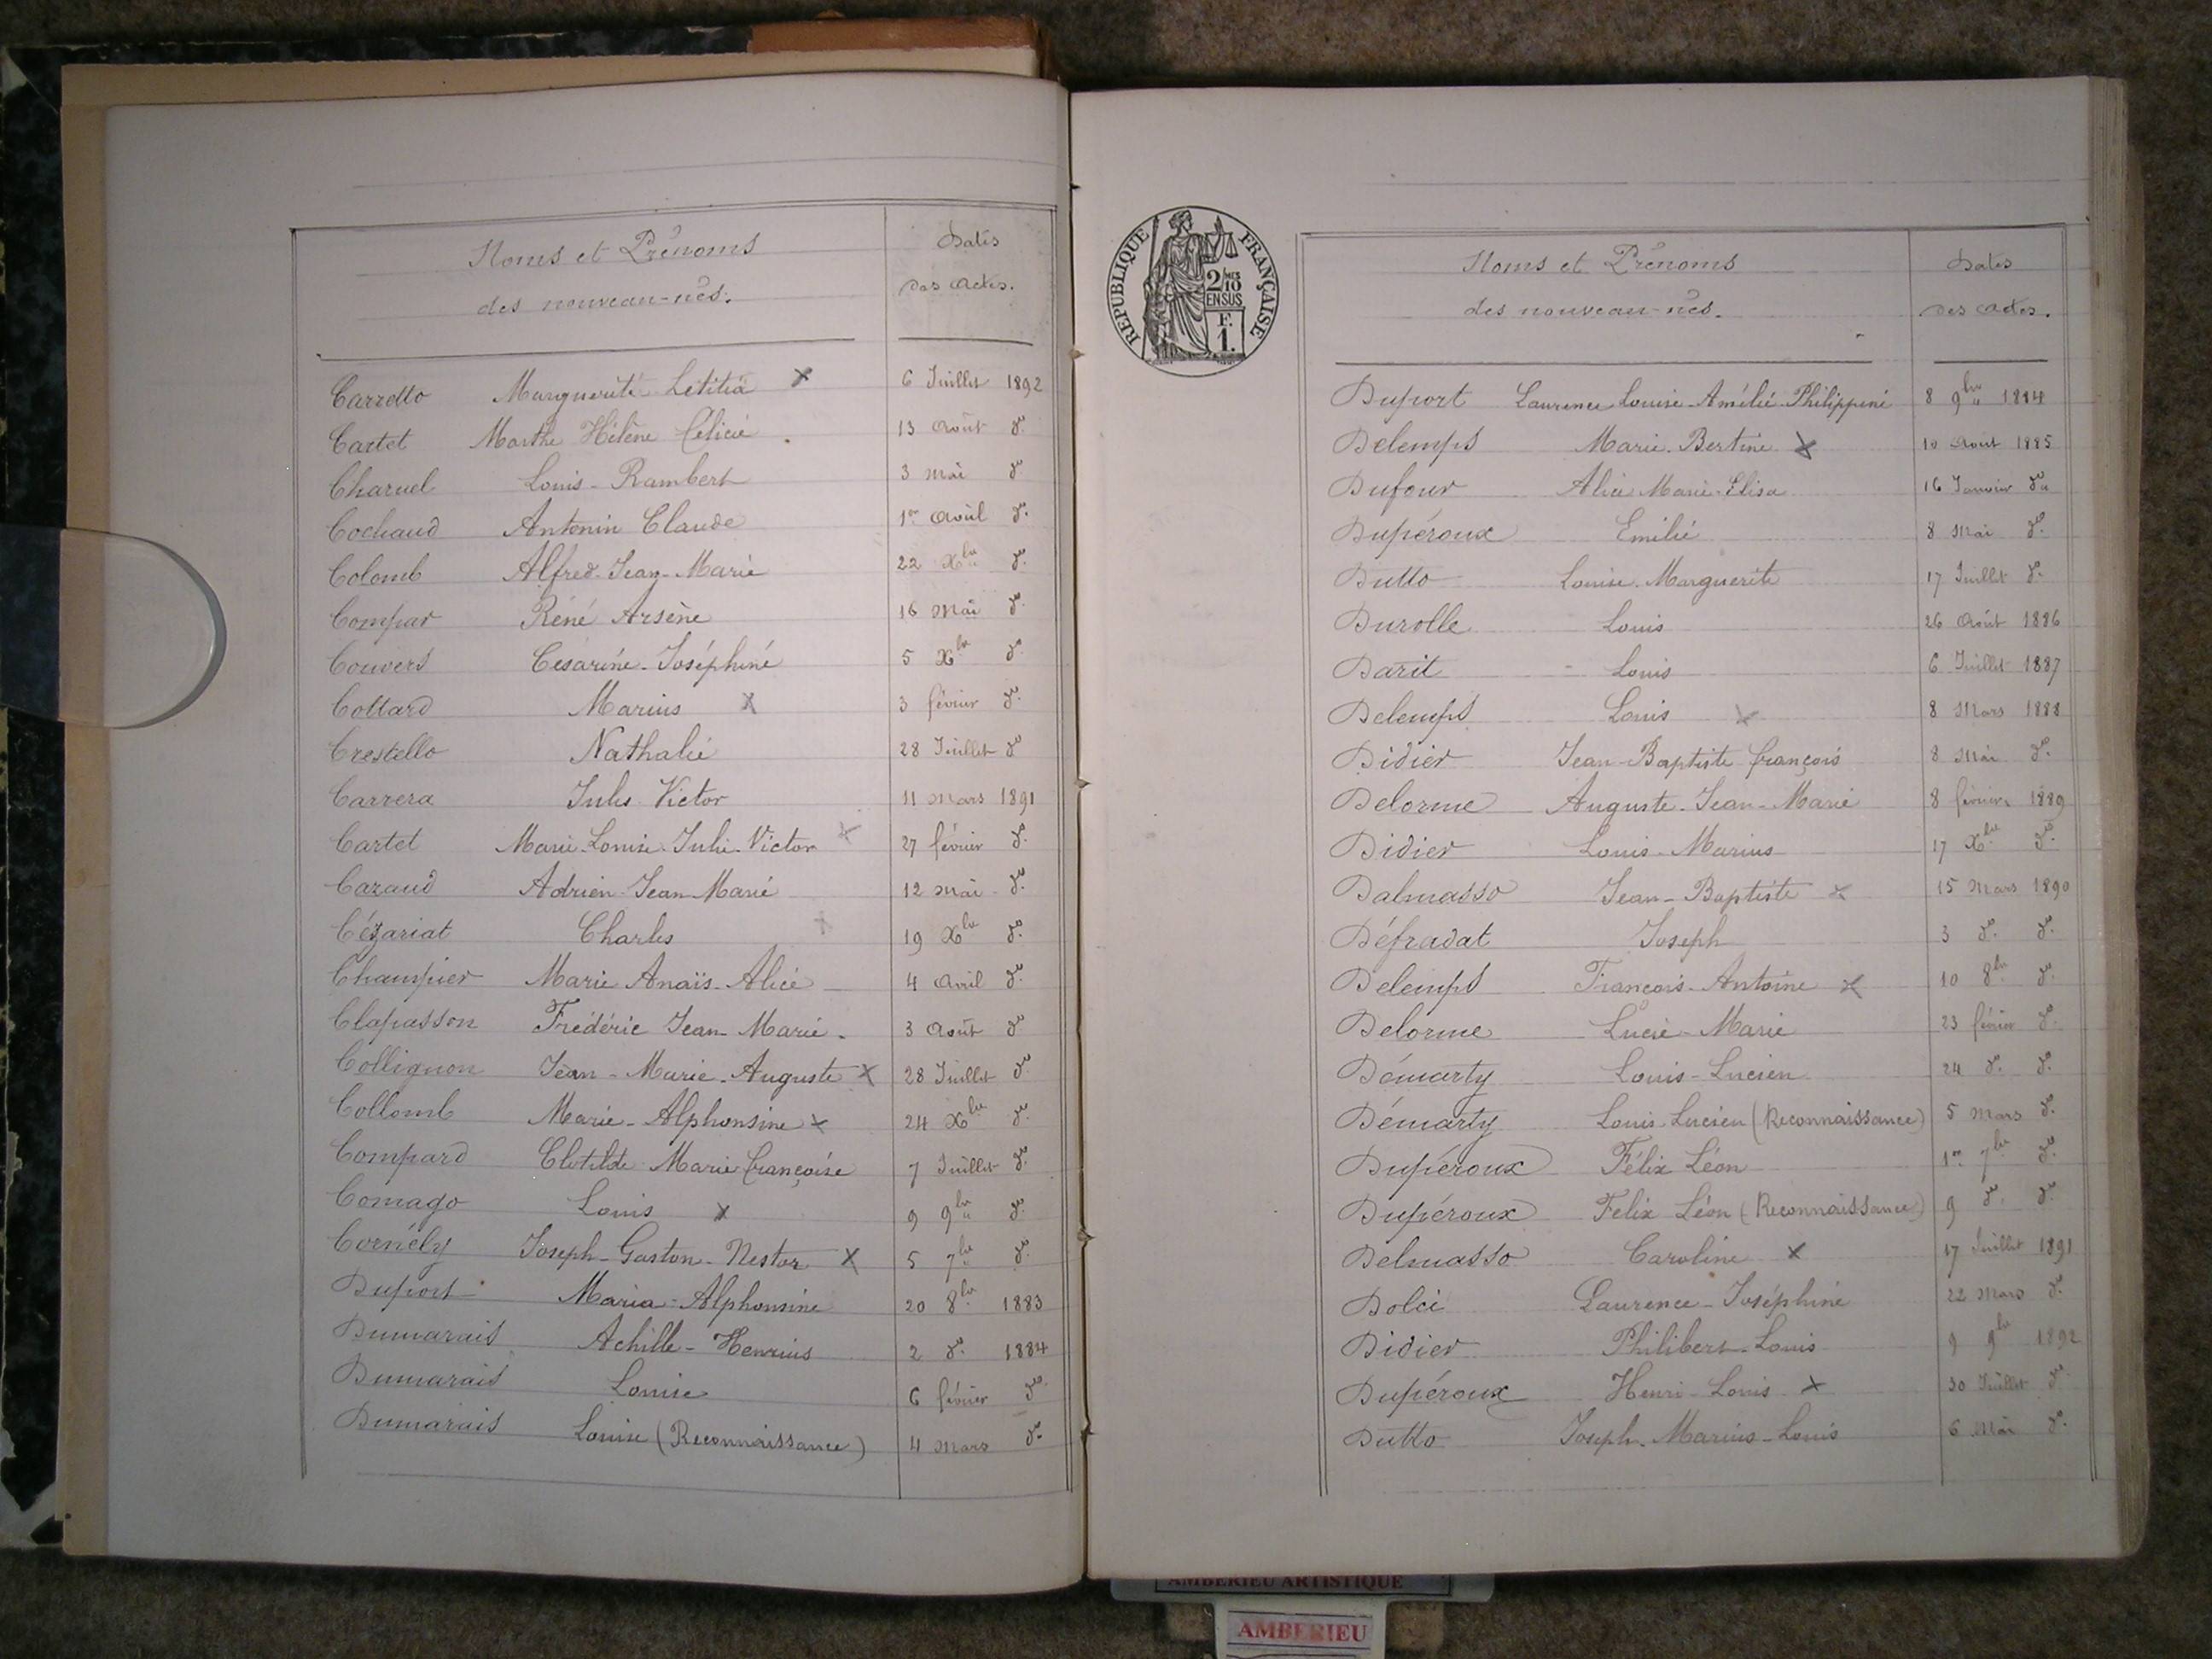 Noms et Prénoms
des nouveau-nés.
Dates
des actes.
Carretto Marguerite Letitia x 6 Juillet 1892
Cartet Marthe Hélène Félicie 13 Août do
Charuel Louis-Rambert 3 mai do
Cochaud Antonin Claude 1er Avril do
Colomb Alfred-Jean-Marie 22 Xbre do
Compar Réné Arsène 16 Mai do
Convers Césarine-Joséphine 5 Xbre do
Cottard Marius x 3 février do
Crestello Nathalie 28 Juillet do
Carrera Jules Victor 11 Mars 1891
Cartet Marie-Louise-Julie-Victor x 27 février do
Cazaud Adrien-Jean-Marie 12 mai do
Cézariat Charles x 19 Xbre do
Champier Marie Anaïs-Alice 4 Avril do
Clapasson Frédéric Jean-Marie 3 Août do
Collignon Jean-Marie-Auguste x 28 Juillet do
Collomb Marie-Alphonsine x 24 Xbre do
Compard Clotilde-Marie françoise 7 Juillet do
Comago Louis x 9 9bre do
Cornély Joseph-Gaston-Nestor x 5 7bre do
Duport Maria-Alphonsine 20 8bre 1883
Dumarais Achille-Henrius 2 do 1884
Dumarais Louise 6 février do
Dumarais Louise (Reconnaissance) 4 Mars do
RÉPUBLIQUE FRANÇAISE
2/10 MES
EN SUS
F.
1.
Noms et Prénoms
des nouveau-nés.
Dates
des actes.
Duport Laurence Louise-Amélie-Philippine 8 9bre 1884
Delemps Marie-Bertine x 10 Aout 1885
Dufour Alice Marie-Elisa 16 Janvier do
Dupéroux Emilie 8 Mai do
Dutto Louise-Marguerite 17 Juillet do
Durolle Louis 26 Août 1886
Darit Louis 6 Juillet 1887
Delemps Louis x 8 Mars 1888
Didier Jean-Baptiste françois 8 Mai do
Delorme Auguste-Jean-Marie 8 février 1889
Didier Louis-Marius 17 Xbre do
Dalmasso Jean-Baptiste x 15 Mars 1890
Défradat Joseph 3 do do
Delemps François-Antoine x 10 8bre do
Delorme Lucie-Marie 23 février do
Démarty Louis-Lucien 24 do do
Démarty Louis-Lucien (Reconnaissance) 5 Mars do
Dupéroux Félix Léon 1er 7bre do
Dupéroux Felix Léon (Reconnaissance) 9 do do
Delmasso Caroline x 17 Juillet 1891
Dolci Laurence-Joséphine 22 Mars do
Didier Philibert-Louis 9 9bre 1892
Dupéroux Henri-Louis x 30 Juillet do
Dutto Joseph-Marius-Louis 6 Mai do
AMBERIEU ARTISTIQUE
AMBERIEU